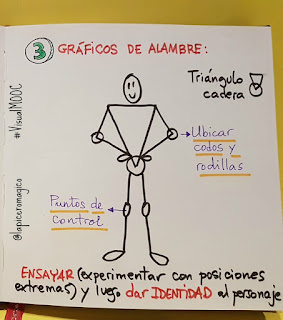 3 GRÁFICOS DE ALAMBRE:
Triángulo
cadera
#VisualMOOC
@lapiceromagico
Ubicar
codos y
rodillas
Puntos de
control
ENSAYAR (experimentar con posiciones
extremas) y luego dar IDENTIDAD al personaje